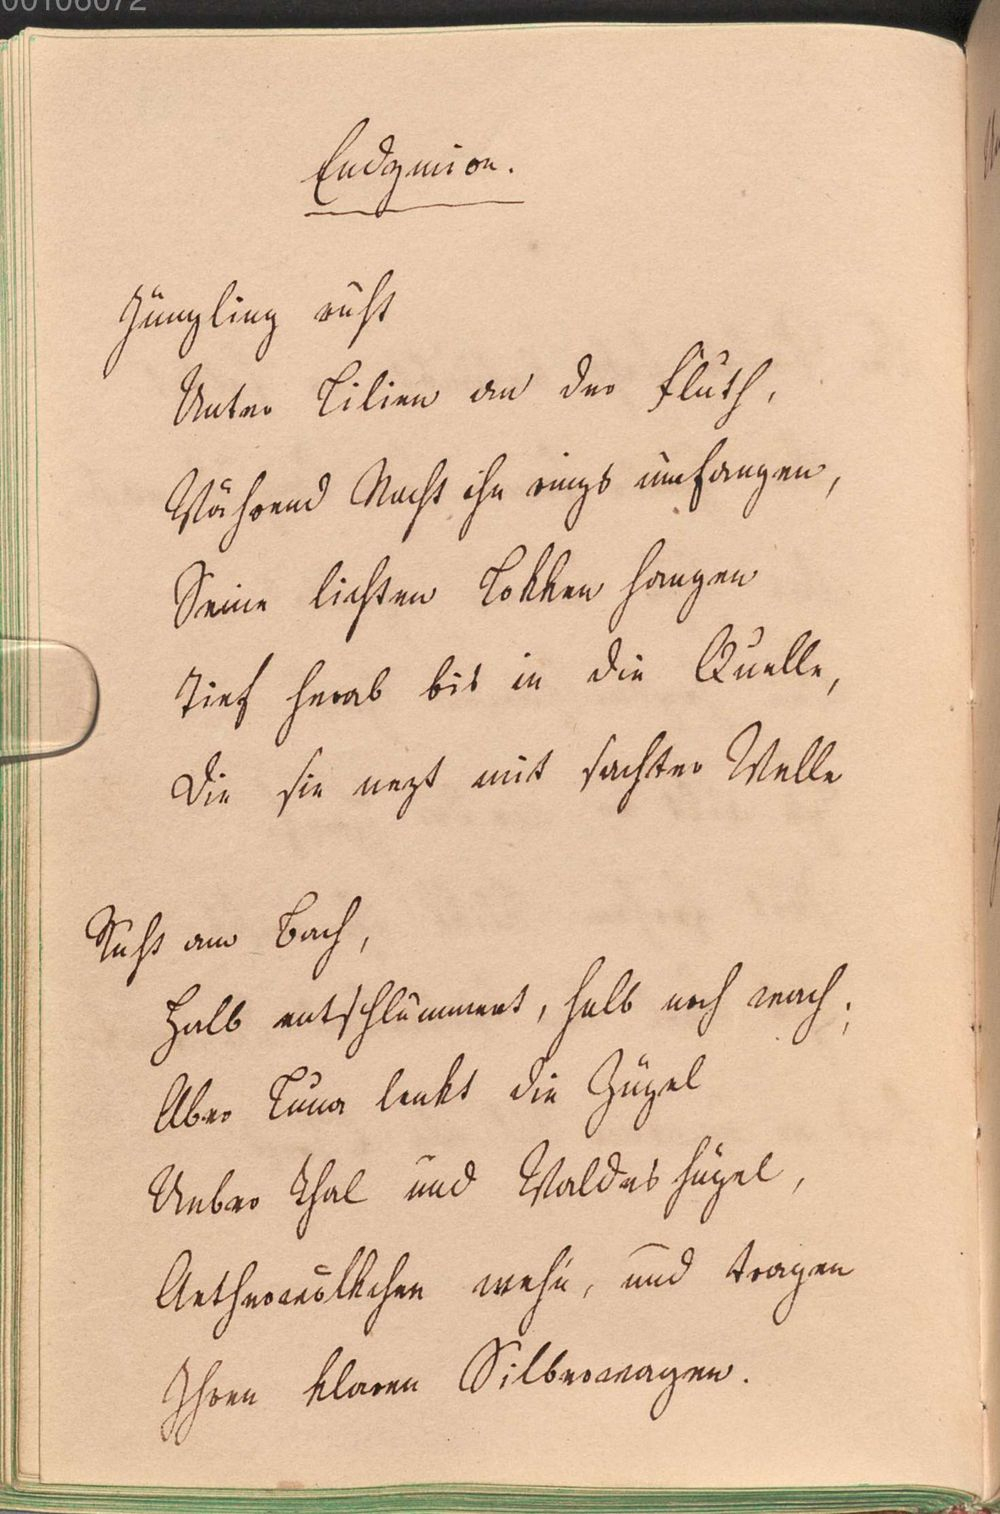 00106072
Endymion.
Jüngling ruht
Unter Lilien an der Fluth,
Während Nacht ihn rings umfangen,
Seine lichten Lokken hangen
Tief herab bis in die Quelle,
Die sie nezt mit sachter Welle
Ruht am Bach,
Halb entschlummert, halb noch wach;
Aber Luna lenkt die Zügel
Ueber Thal und Waldeshügel,
Aetherwölkchen wehn, und tragen
Ihren klaren Silberwagen.